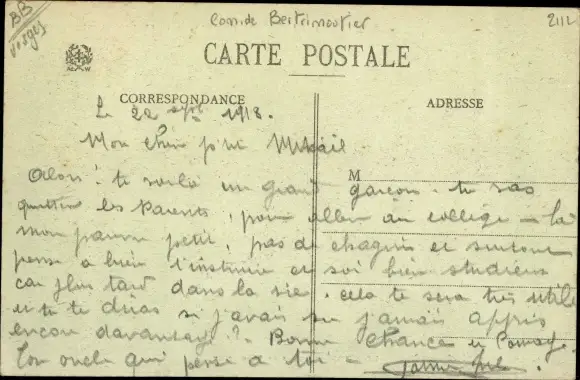 BB
Vosges
Comde Bertrimoutier
CARTE POSTALE
CORRESPONDANCE
ADRESSE
Le 22 1918.
Mon cher p'tit
M
Alors! te voila un grand garçon. tu vas
quitter les Parents, pour aller au college - là
mon pauvre petit, pas de chagrin et surtout
pense a bien t'instruire et soi bien studieux
car plus tard dans la vie. cela te sera très utile
et tu te diras si j'avais su j'amais appris
encore davantage? - Bonne Chance et Courage.
Ton oncle qui pense a toi -